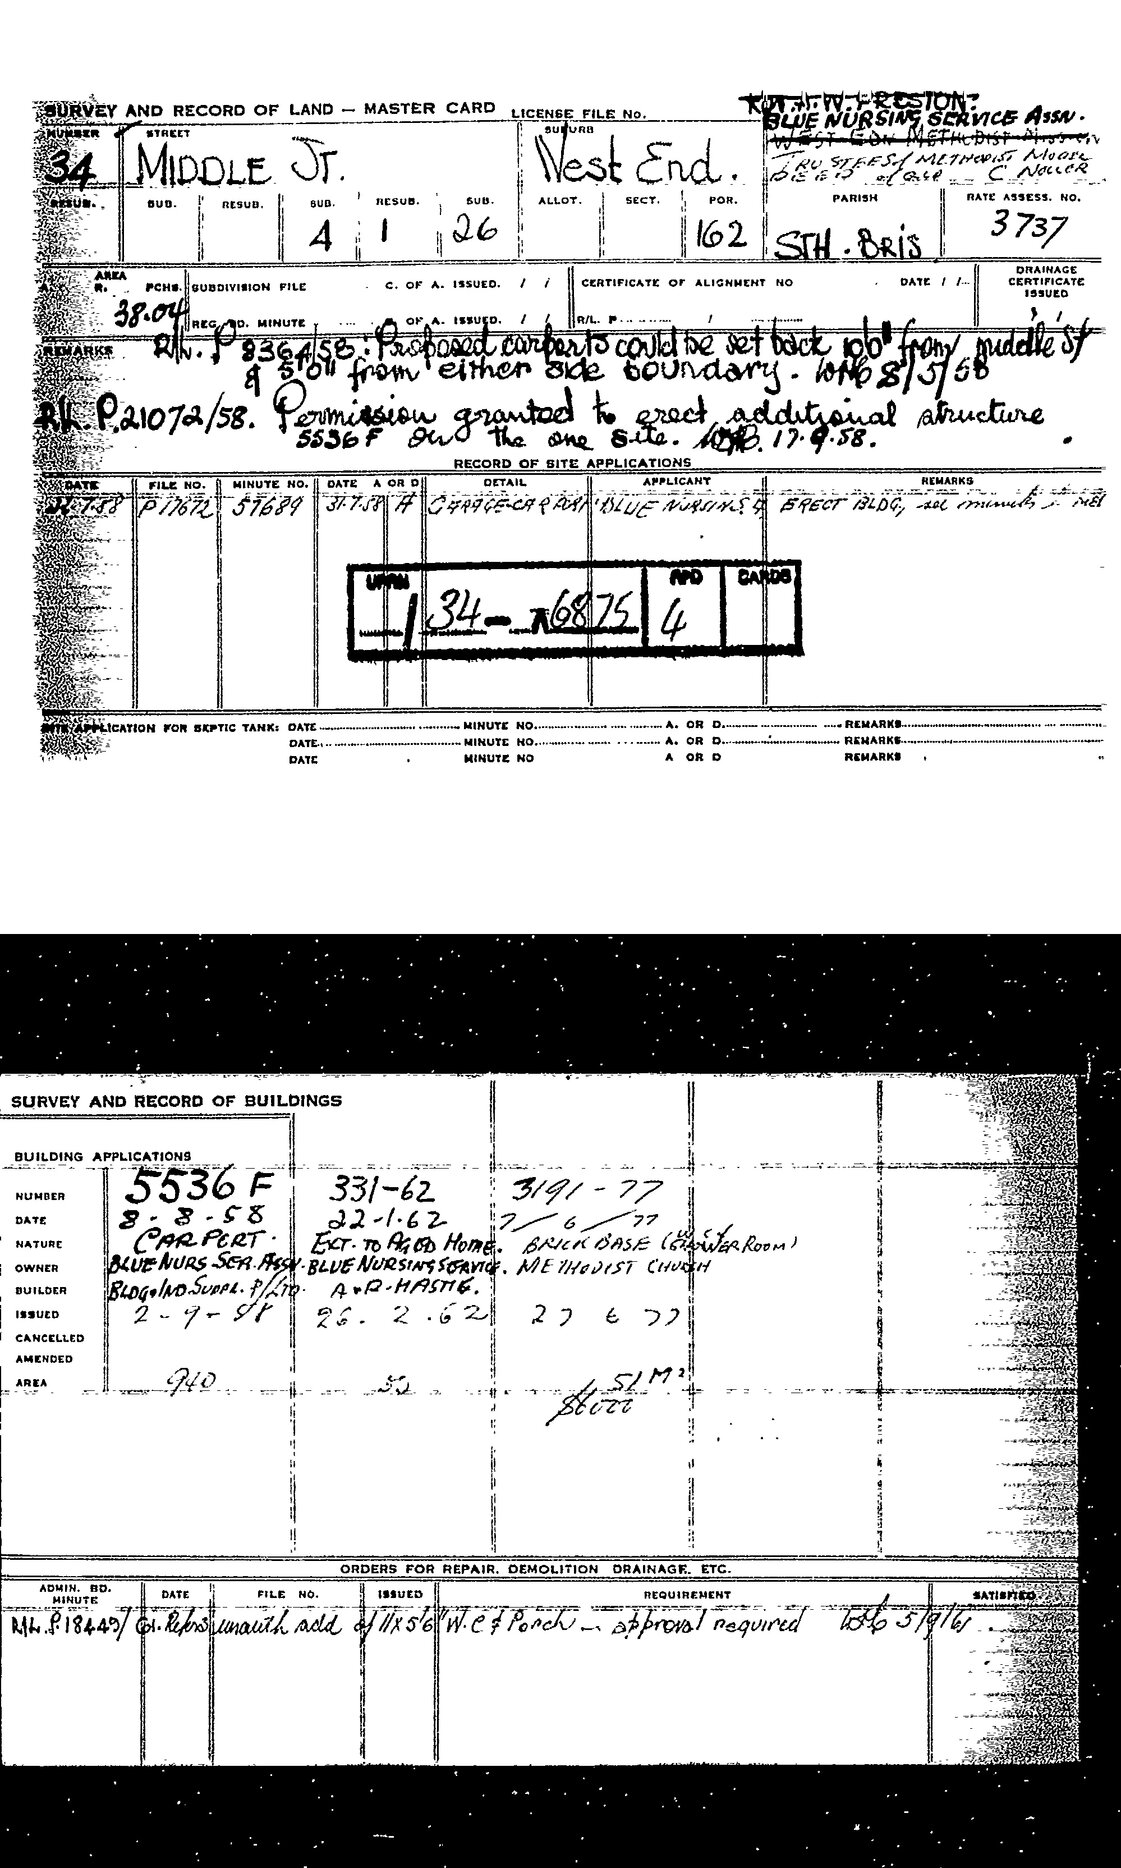 SURVEY AND RECORD OF LAND — MASTER CARD LICENSE FILE No.
BLUE NURSING SERVICE ASSN.
NUMBER STREET SUBURB
34 MIDDLE ST. West End.
TRUSTEES METHODIST MODEL
DEED C NOLLER
RESUB. SUB. RESUB. SUB. RESUB. SUB. ALLOT. SECT. POR. PARISH RATE ASSESS. NO.
4 1 26 162 STH. BRIS 3737
AREA
A. R. PCHS. SUBDIVISION FILE C. OF A. ISSUED. / / CERTIFICATE OF ALIGNMENT NO DATE / /
DRAINAGE CERTIFICATE ISSUED
38.04 REG. BD. MINUTE C. OF A. ISSUED. / / R/L. P. /
REMARKS R/L. P 8364/58: Proposed carports could be set back from middle St
& 5'0" from either side boundary. 8/5/58
R/L. P.21072/58. Permission granted to erect additional structure
5536 F on the one site. 17.9.58.
RECORD OF SITE APPLICATIONS
DATE FILE NO. MINUTE NO. DATE A OR D DETAIL APPLICANT REMARKS
P17672 57689 31.7.58 A GARAGE-CAR PORT BLUE NURSING ERECT BLDG, see minute
UPRN RPD CARDS
34 - 6875 4
SITE APPLICATION FOR SEPTIC TANK: DATE MINUTE NO. A. OR D. REMARKS
DATE MINUTE NO. A. OR D. REMARKS
DATE MINUTE NO A OR D REMARKS
SURVEY AND RECORD OF BUILDINGS
BUILDING APPLICATIONS
NUMBER 5536 F 331-62 3191-77
DATE 8-8-58 22-1-62 7/6/77
NATURE CAR PORT. EXT. TO AGED HOME. BRICK BASE (SHOWER ROOM)
OWNER BLUE NURS. SER. ASSN. BLUE NURSING SERVICE. METHODIST CHURCH
BUILDER BLDG & IND. SUPPL. P/LTD. A & R. HASTIE.
ISSUED 2-9-58 26.2.62 27 6 77
CANCELLED
AMENDED
AREA 940 51 M²
$6000
ORDERS FOR REPAIR. DEMOLITION DRAINAGE. ETC.
ADMIN. BD. MINUTE DATE FILE NO. ISSUED REQUIREMENT SATISFIED
R/L. P.18449/61. Refers unauth add of 11'x5'6" W.C & Porch — approval required 5/9/61